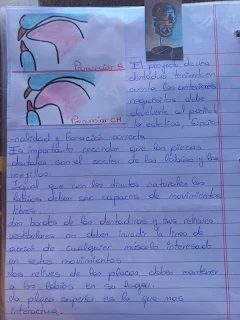 Pronunciar S
Pronunciar CH
El proposito de una
dentadura teniendo en
cuenta los anteriores
requisitos debe
devolverle al paciente
la estetica, funcio-
nalidad y fonación correcta
Es importante recordar que las placas
dentales son el sosten de los labios y las
mejillas.
Igual que con los dientes naturales los
labios deben ser capaces de movimientos
libres
Los bordes de las dentaduras y sus relieves
vestibulares no deben invadir la linea de
acción de cualquier músculo interesado
en estos movimientos.
Los relieves de las placas deben mantener
a los labios en su lugar.
La placa superior es la que mas
interactua.